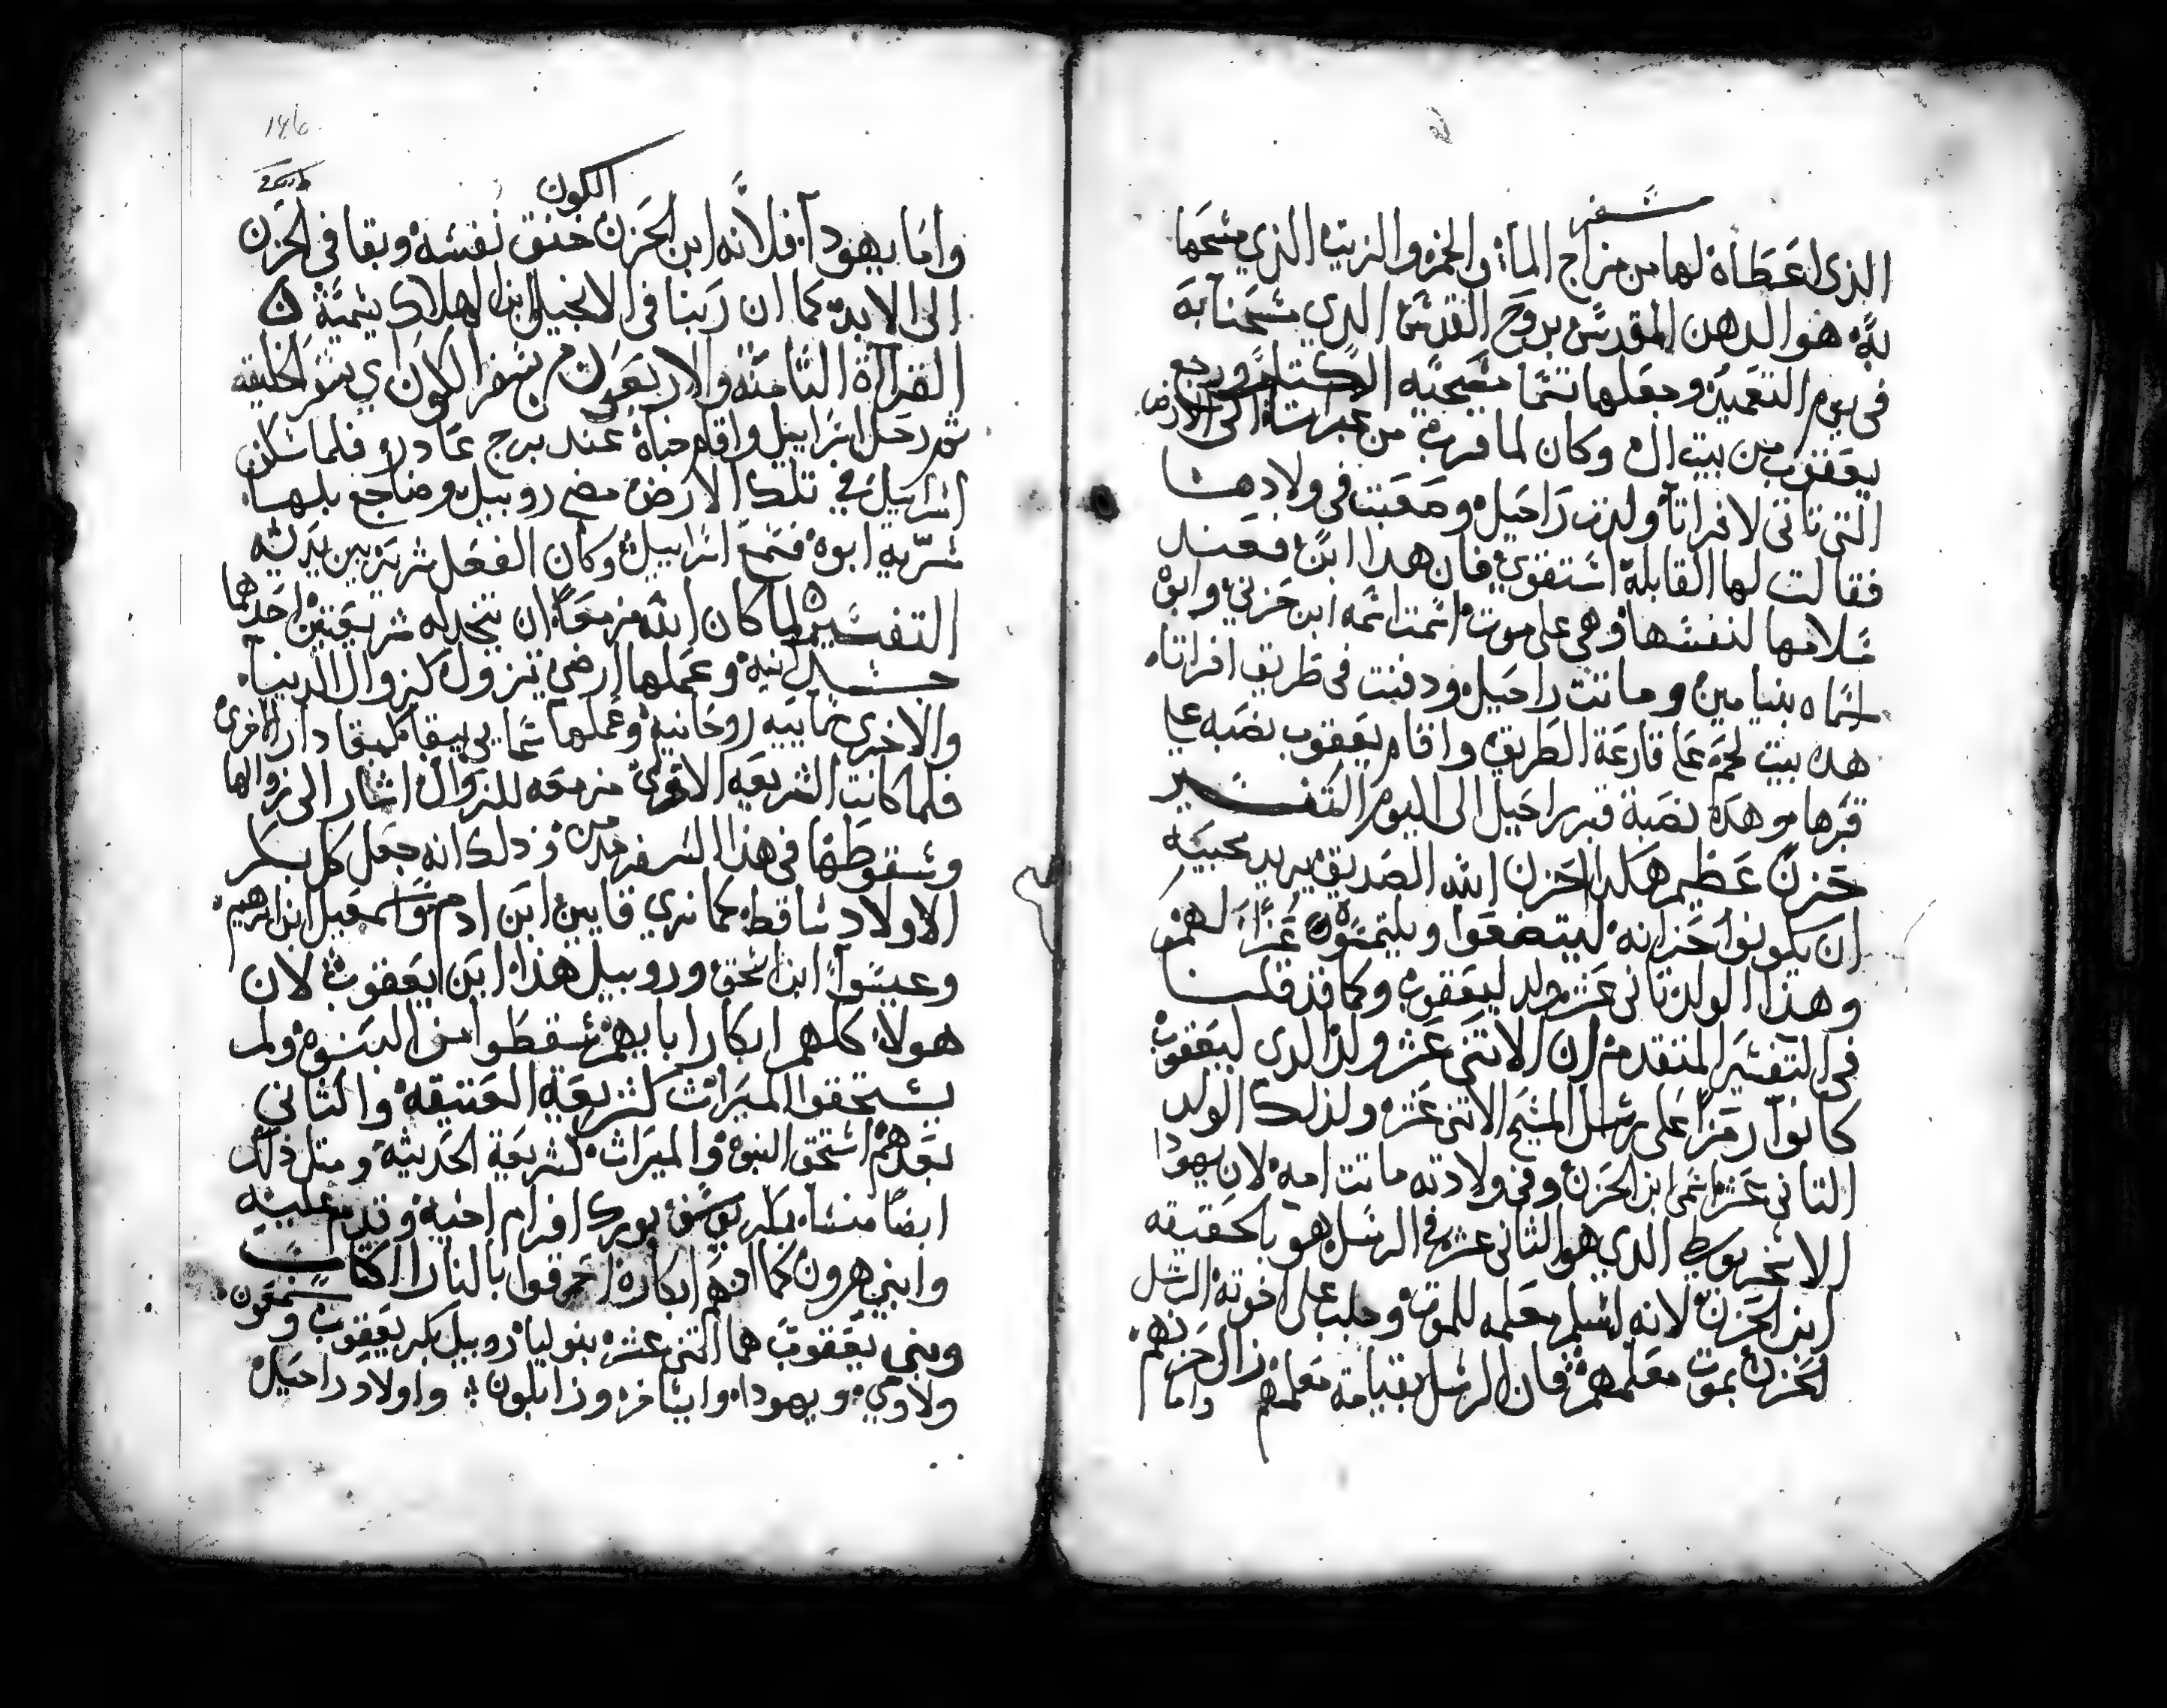 سفر
الذى اعطاه لها من مزاج الماء والخمر والزيت الذي مسحها
به هو الدهن المقدس بروح القدس الدي مسحنا به
فى يوم التعميد وجعلها نتما مسيحيه الكتاب ورجع
يعقوب من بيت ال وكان لما قرب من عبرتا الى الارض
التى تاتى لافراتا ولدت راحيل وصعبت فى ولادهـا
فقالت لها القابلة استقوي فان هدا ابن فعند
سلامها لنفسها وهي على موت اسمت اسمه ابن حزني وابوه
اسماه بنيامين وماتت راحيل ودفنت فى طريق افراتا
هده بيت لحم على قارعة الطريق واقام يعقوب نصبه على
قبرها وهده نصبة قبر راحيل الى اليوم التفسير
حزن عظيم هكدا حزن الله الصديق يريد محبيه
ان يكونوا حزانه ليتضعوا ويلتمسون عزاء لهم
وهذا الولد تانى عشر ولد ليعقوب وكما قد قلنا
فى التفسير المتقدم ان الاتنى عشر ولد الدى ليعقوب
كانوا رمزا على رسل المسيح الاتنى عشر ولذلك الولد
التانى عشر اسمى ابن الحزن وفى ولادته ماتت امه لان يهودا
الاسخريوطي الدي هو التانى عشر فى الرسل هو بالحقيقه
ابن الحزن لانه اسلم معلمه للموت وجلب على اخوته الرسل
الحزن بموت معلمهم فان الرسل بقيامة معلمهم زال حزنهم
واما
الكون
واما يهودا فلانه ابن الحزن خنق نفسه وبقا فى الحزن
الى الابد كما ان ربنا فى الانجيل ابن الهلاك يسميه
القراة التامنه والاربعون من سفر الكون اي سفر الخليقه
تم رحل اسراييل واقام خباه عند برج عادر فلما سكن
اسراييل في تلك الارض مضى روبيل وضاجع بلها
سرية ابوه فسمع اسراييل وكان الفعل شر بين يديه
التفسير لما كان الله مزمعا ان يتخد له شريعتين احدهما
جسدانيه وعملها ارضي تزول كزوال الدنيا
والاخرى روحانيه وعملها سمايي يبقا كبقا دار الاخرى
فلما كانت الشريعه الاولى مزمعه للزوال اشار الى زوالها
وسقوطها فى هذا السفر وذلك انه جعل كل بكر
الاولاد ساقط كما نرى قايين ابن ادم واسمعيل ابن ابرهيم
وعيسوا ابن اسحق وروبيل هذا ابن يعقوب لان
هولاء كلهم ابكار ابايهم سقطوا من البنوه ولم
يستحقوا الميرات كشريعة العتيقه والثاني
بعدهم استحق البنوه والميراث كشريعة الحديثه ومتل ذلك
ايضا منسا بكر يوسف بورك افرام اخيه وقدم عليه
وابني هرون كما انهم ابكاره احترقوا بالنار الكتاب
وبنى يعقوب هما اتنى عشر بنو ليا روبيل بكر يعقوب وشمعون
ولاوي ويهودا وايساخر وزابلون واولاد راحيل